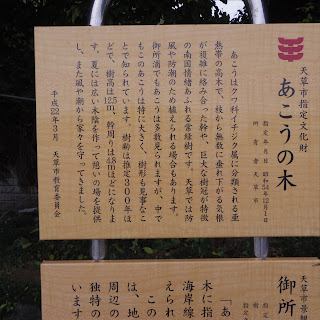 天草市指定文化財
あこうの木
指定年月日 昭和54年12月1日
所有者 天草市
あこうはクワ科イチジク属に分類される亜
熱帯の高木で、枝から無数に垂れ下がる気根
が複雑に絡み合った幹や、巨大な樹冠が特徴
の南国情緒あふれる常緑樹です。天草では防
風や防潮のため植えられる場合もあります。
御所浦でもあこうは多数見られますが、中で
もこのあこうは特に大きく、樹形も見事なこ
とで知られています。樹齢は推定300年ほ
どで、樹高は12.5m、幹周りは4.8mほどになりま
す。夏には広い木陰を作って憩いの場を提供
し、また風や潮から家々を守ってきました。
平成22年3月 天草市教育委員会
天草市景観
御所
指定
所
「あ
木に指
海岸線
えられ
この
は、地
周辺の
独特の
います